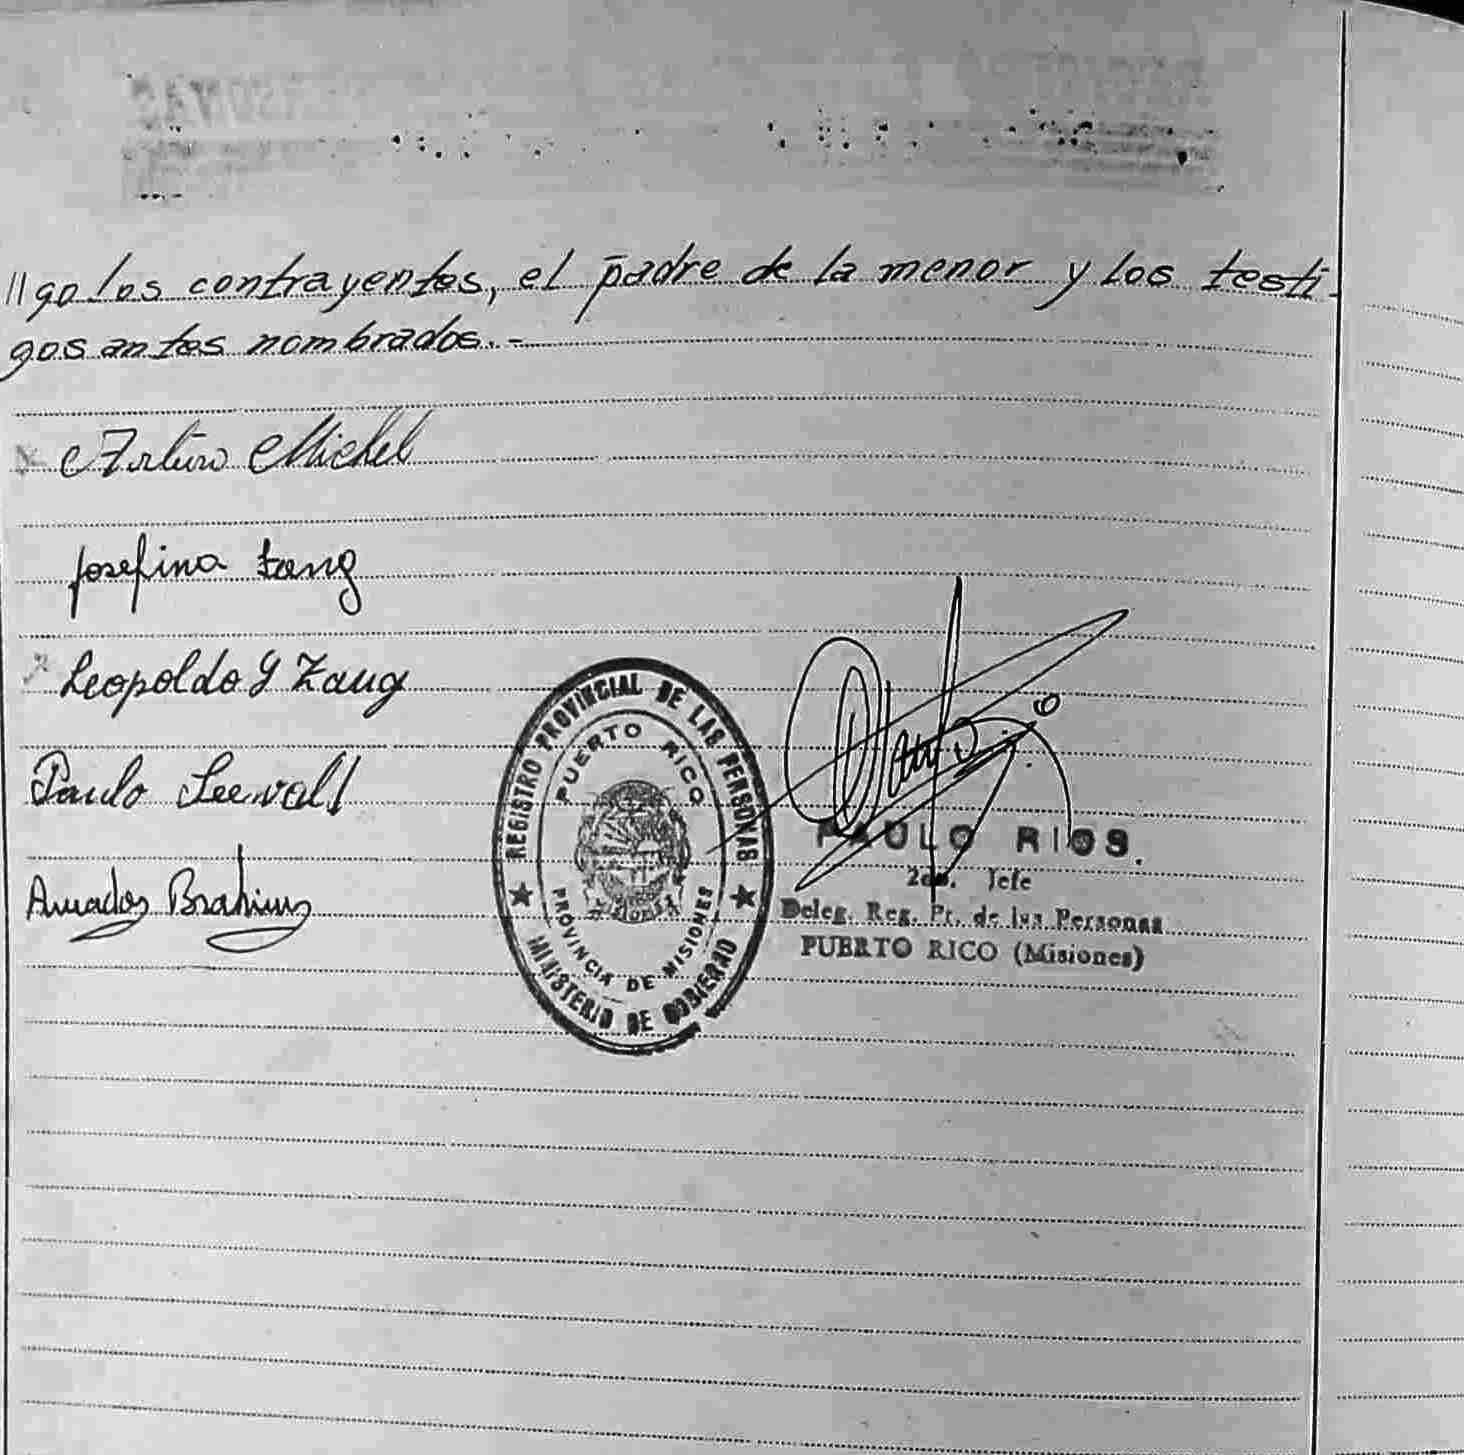 //go los contrayentes, el padre de la menor y los testi-
gos antes nombrados.-
Arturo Michel
Josefina Zang
Leopoldo Y Zang
Paulo
Amador
REGISTRO PROVINCIAL DE LAS PERSONAS
PUERTO RICO
PROVINCIA DE MISIONES
MINISTERIO DE GOBIERNO
PAULO RIOS.
2do. Jefe
Deleg. Reg. Pr. de las Personas
PUERTO RICO (Misiones)